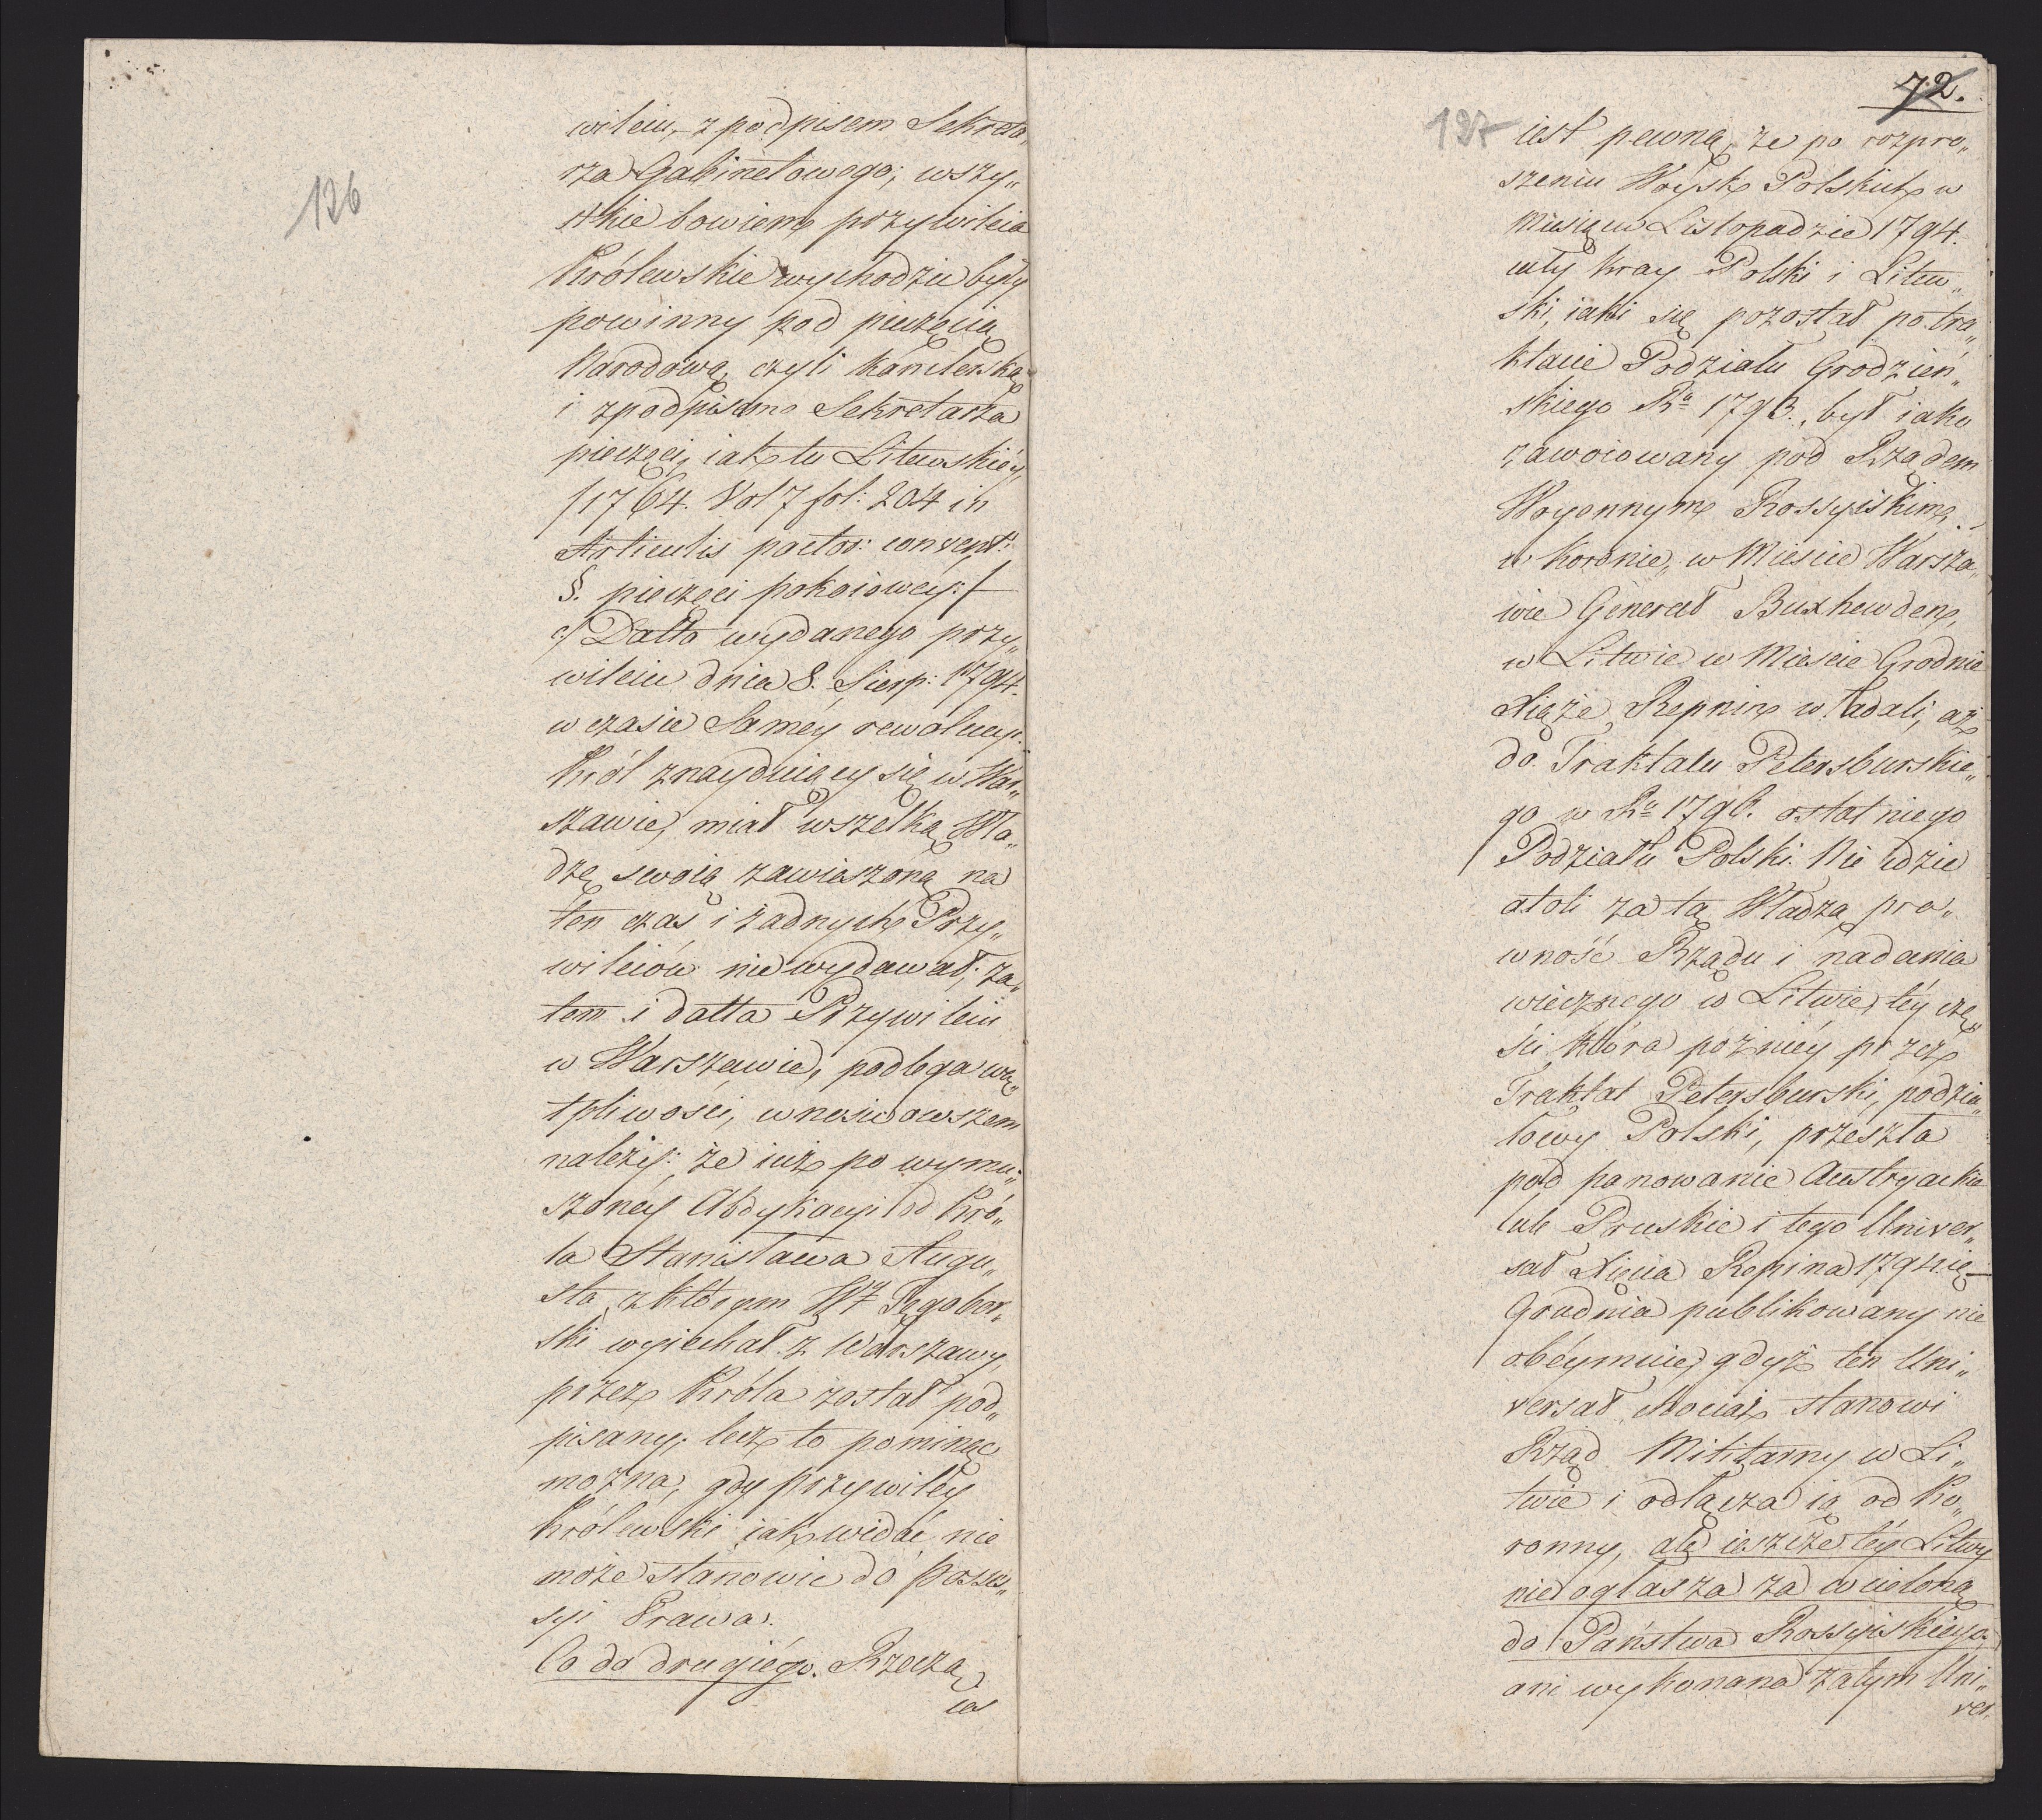 126
wileiu, z podpisem Sekreta„
rza Gabinetowego; wszy„
stkie bowiem przywileia
Królewskie wychodzić były
powinny pod pieczęcią
Narodową, czyli Kanclerską
i z podpisem Sekretarza
pieczęci, iak tu Litewskiéy
/1764. Vol 7 fol: 204 in
Articulis pactor: convent:
§. pieczęci pokoiowey:/
c/ Datta wydanego przy„
wileiu dnia 8. Sierp: 1794.
w czasie Saméy rewolucyi.
Król znayduiący się w War„
szawie, miał wszelką Wła„
dzę swoią zawieszoną na
ten czas i żadnych Przy„
wileiów nie wydawał; za„
tem i datta Przywileiu
w Warszawie, podlega wą„
tpliwości, wnosić owszem
należy: że iuż po wymu„
szonéy Abdykacyi od Kró„
la Stanisława Augu„
sta, z którym W. Tęgobor„
ski wyiechał z Warszawy,
przez Króla został pod„
pisany. lecz to pominąć
można, gdy przywiley
Królewski iak widać nie
może stanowić do posses„
syi Prawa.
Co do drugiégo. Rzeczą
ies
72.
127
iest pewną, że po rozpro„
szeniu Woysk Polskich w
Miesiącu Listopadzie 1794.
cały Kray Polski i Litew„
ski, iaki się pozostał po tra„
ktacie Podziału Grodzień„
skiego Rº 1793., był iako
zawoiowany pod Rządem
Woyennym Rossyiskim,
w Koronie, w Mieście Warsza„
wie Generał Buxhewden,
w Litwie w Mieście Grodnie
Xiąże Repnin władali, aż
do Traktatu Petersburskie„
go w Rº 1796. ostatniego
Podziału Polski. Nie idzie
atoli za tą Władzą pra„
wność Rządu i nadania
wiecznego w Litwie, téy czę„
ści która poźniéy przez
Traktat Petersburski, podzia„
łowy Polski, przeszła
pod panowanie Austryackie
lub Pruskie i tego Univer„
sał Xięcia Repina 1794
Grudnia publikowany nie
obéymuie, gdyż ten Uni„
versał stanowi
Rząd Militarny w Li„
twie i odłącza ią od Ko„
ronny, ale ieszcze téy Litwy
nie ogłasza za wcieloną
do Państwa Rossyiskiego,
ani wykonana zatym Uni„
ver.